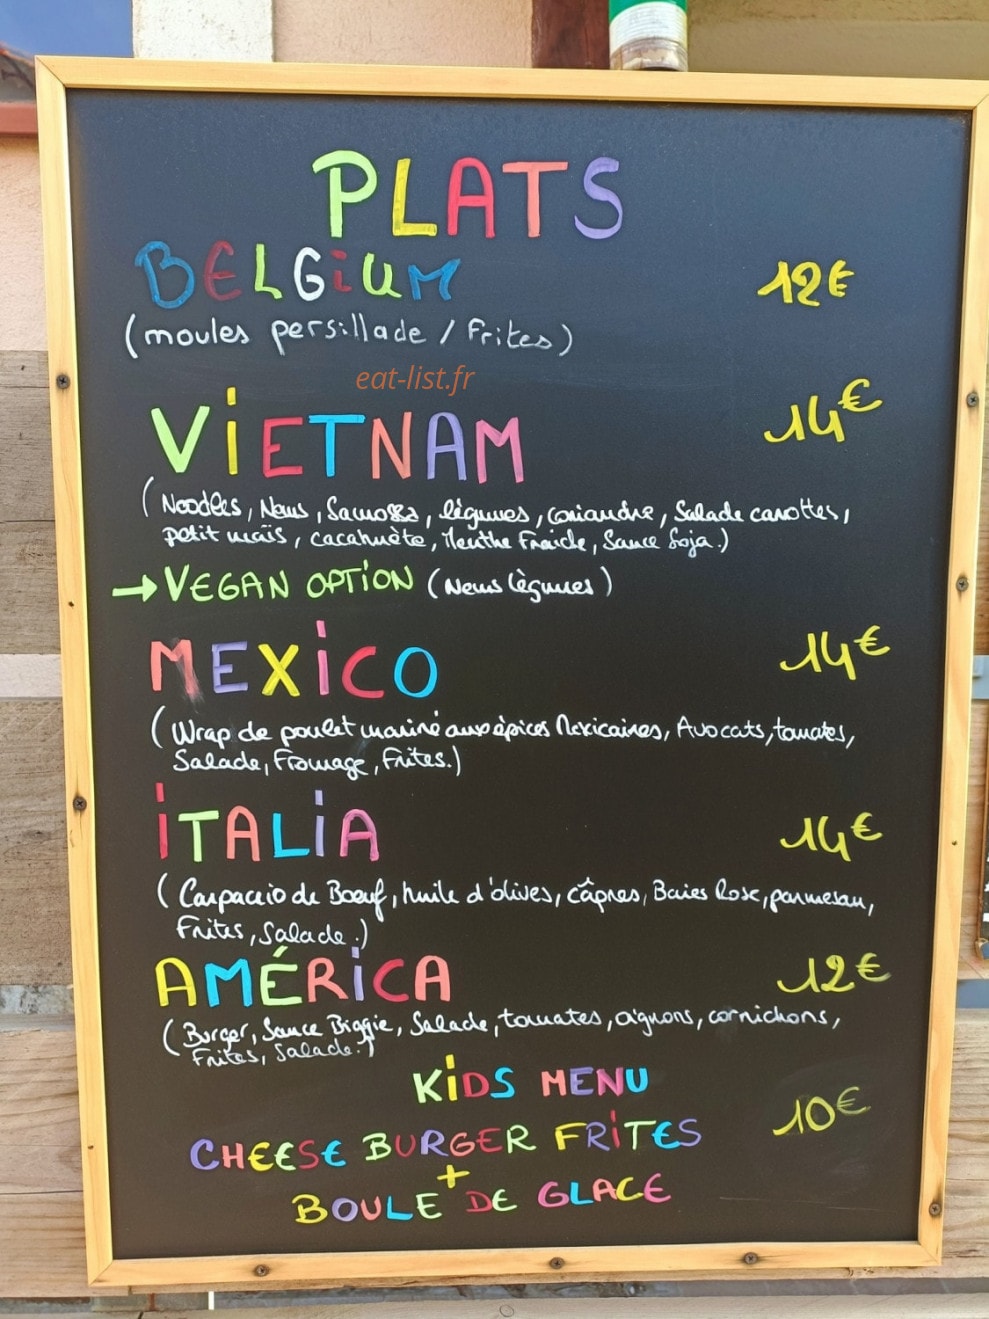 PLATS
BELGiUM 12€
(moules persillade / Frites)
eat-list.fr
ViETNAM 14€
(Noodles, Nems, Samossa, légumes, coriandre, Salade carottes,
petit maïs, cacahuète, Menthe Fraiche, Sauce Soja.)
→ VEGAN OPTiON (Nems légumes)
MEXiCO 14€
(Wrap de poulet mariné aux épices Mexicaines, Avocats, tomates,
Salade, Fromage, Frites.)
iTALiA 14€
(Carpaccio de Boeuf, huile d'olives, câpres, Baies Rose, parmesan,
Frites, Salade.)
AMÉRiCA 12€
(Burger, Sauce Biggie, Salade, tomates, oignons, cornichons,
Frites, Salade.)
KiDS MENU
CHEESE BURGER FRiTES 10€
+
BOULE DE GLACE